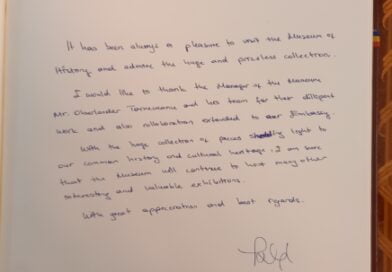 It has been always a pleasure to visit the Museum of
History and admire the huge and priceless collection.
I would like to thank the Manager of the Museum
Mr. Oberlander Tarnoveanu and his team for their diligent
work and also collaboration extended to our Embassy.
With the huge collection of pieces shedding light to
our common history and cultural heritage, I am sure
that the Museum will continue to host many other
interesting and valuable exhibitions.
With great appreciation and best regards.